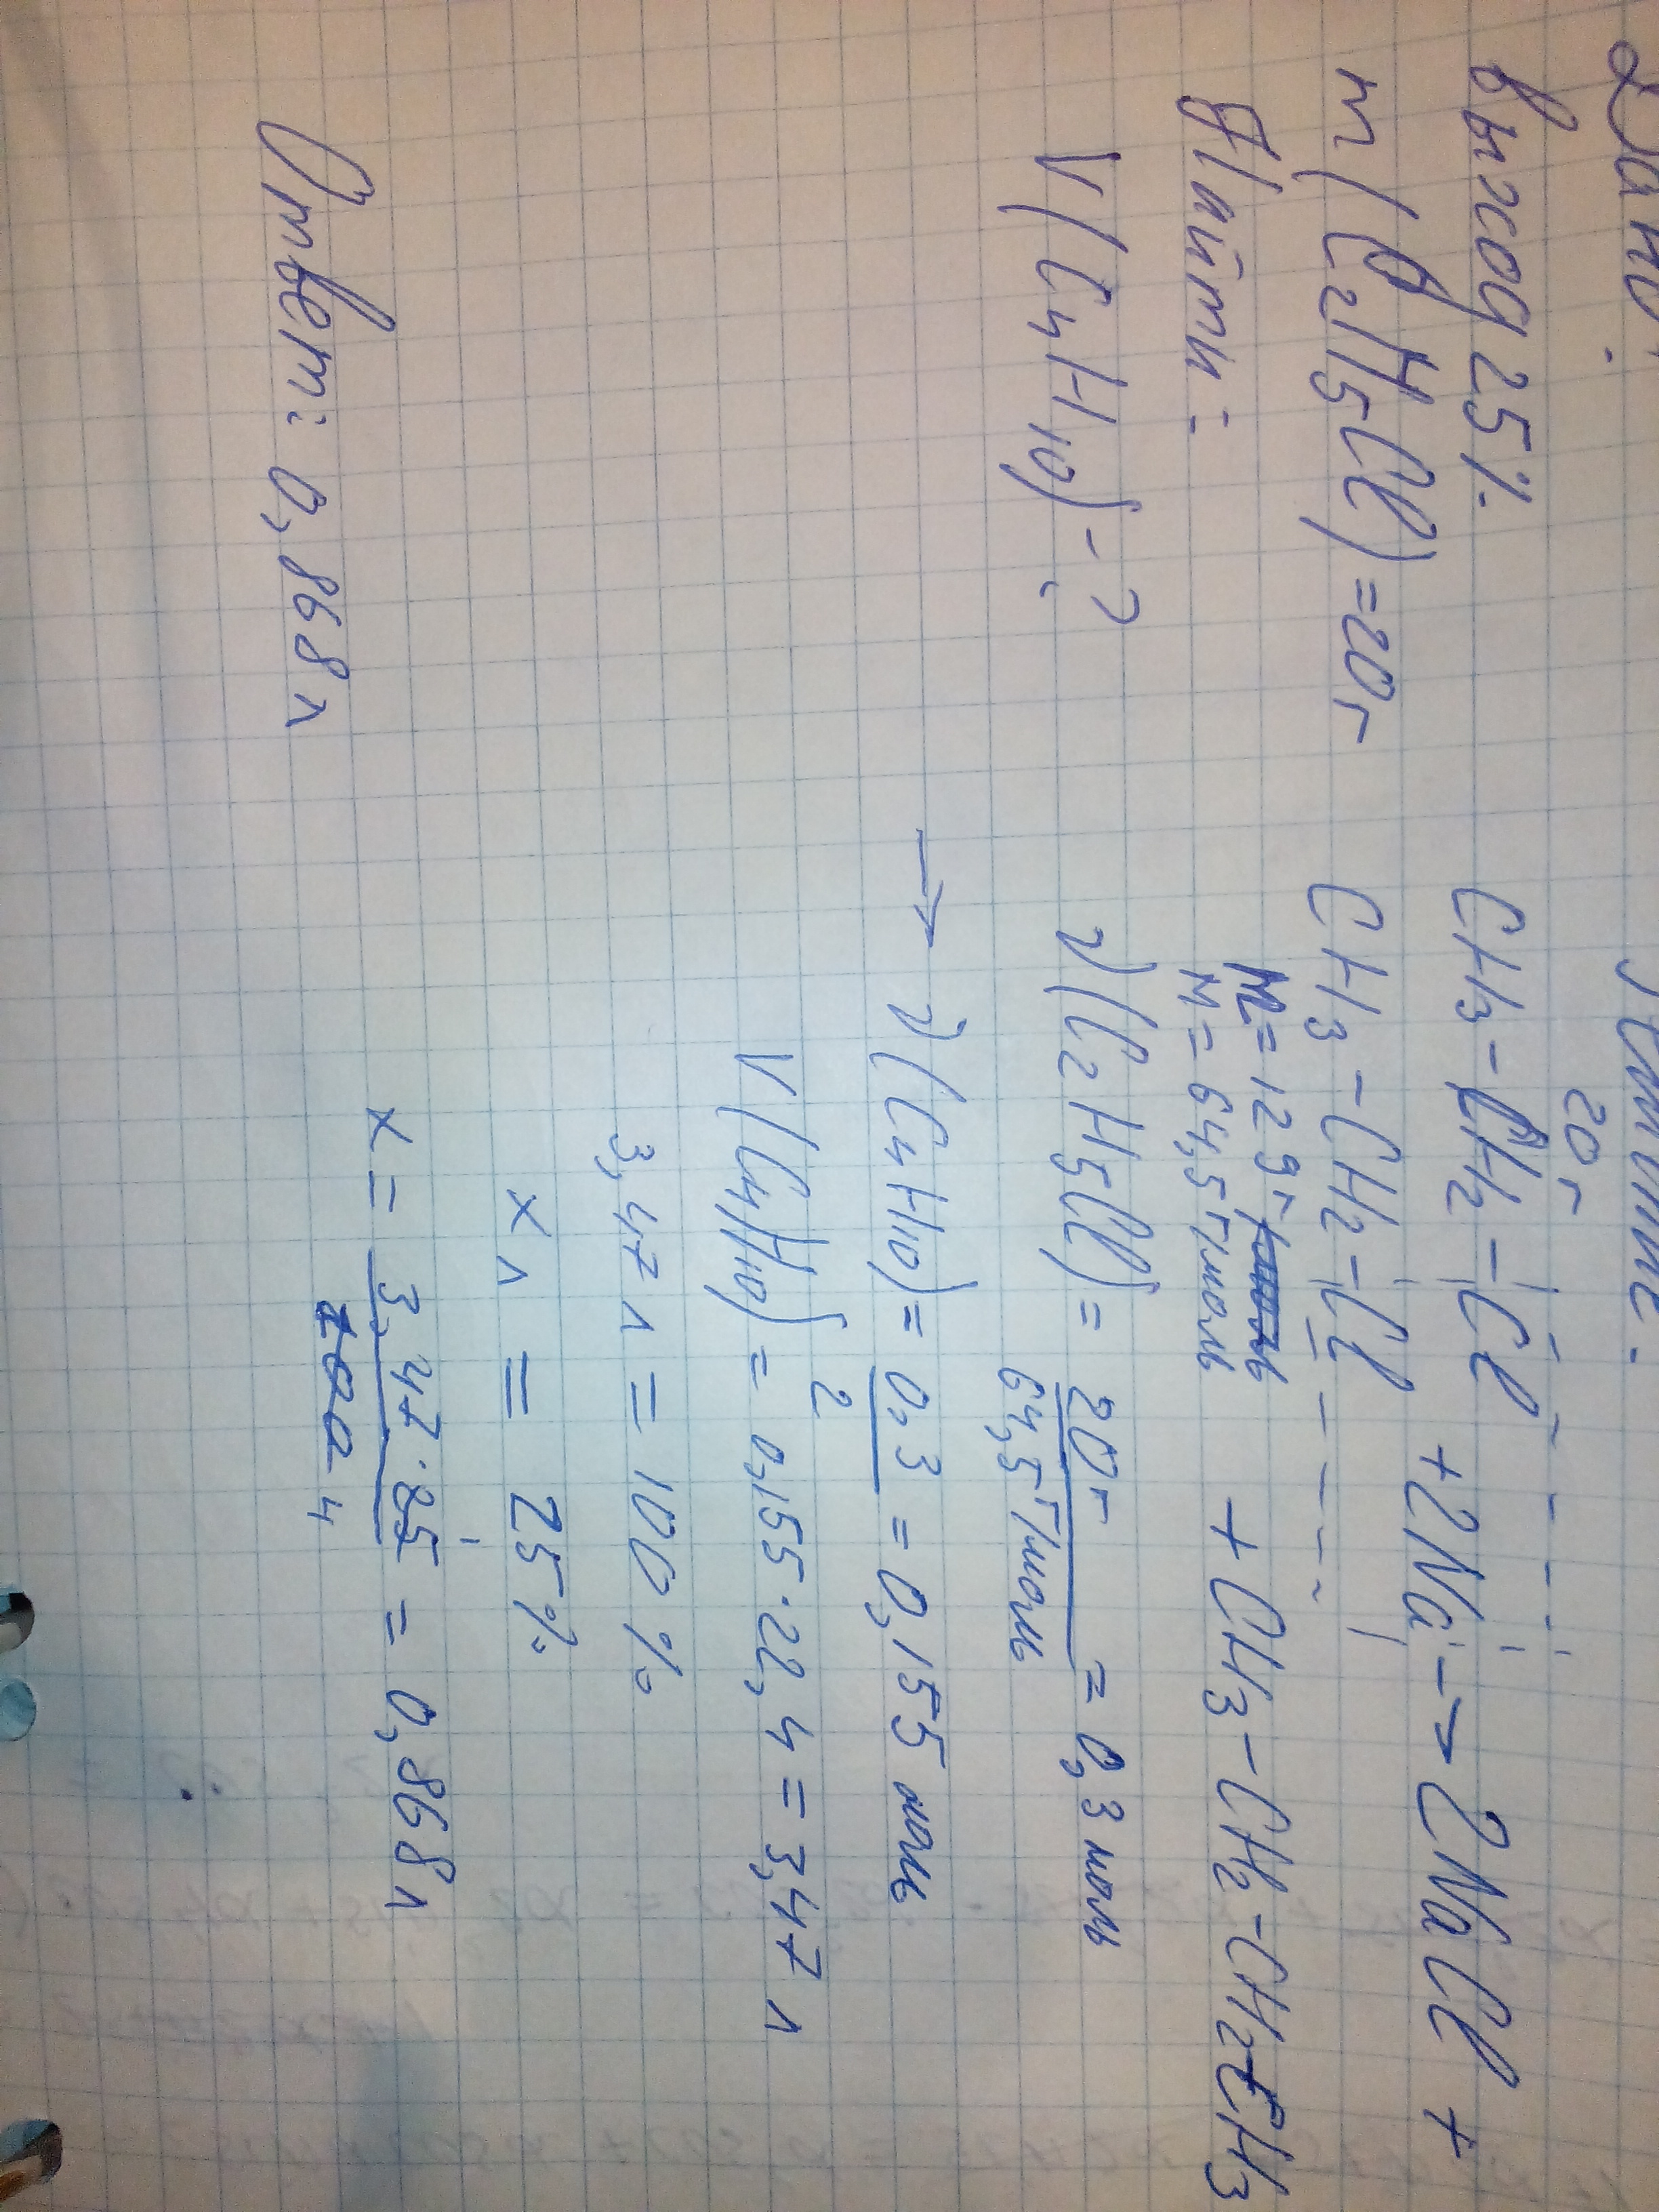 Дано:
выход 25%
m(C2H5Cl)=20г
Найти:
V(C4H10)-?
Решение:
20г
CH3-CH2-Cl +2Na→2NaCl +
CH3-CH2-Cl
M=129г
M=64,5г/моль
+CH3-CH2-CH2-CH3
ν(C2H5Cl)= 20г/64,5г/моль = 0,3моль
→ ν(C4H10)= 0,3/2 = 0,155 моль
V(C4H10) = 0,155·22,4=3,47 л
3,47 л = 100 %
x л = 25 %
x= 3,47·25/100 = 0,868 л
1
4
Ответ: 0,868 л